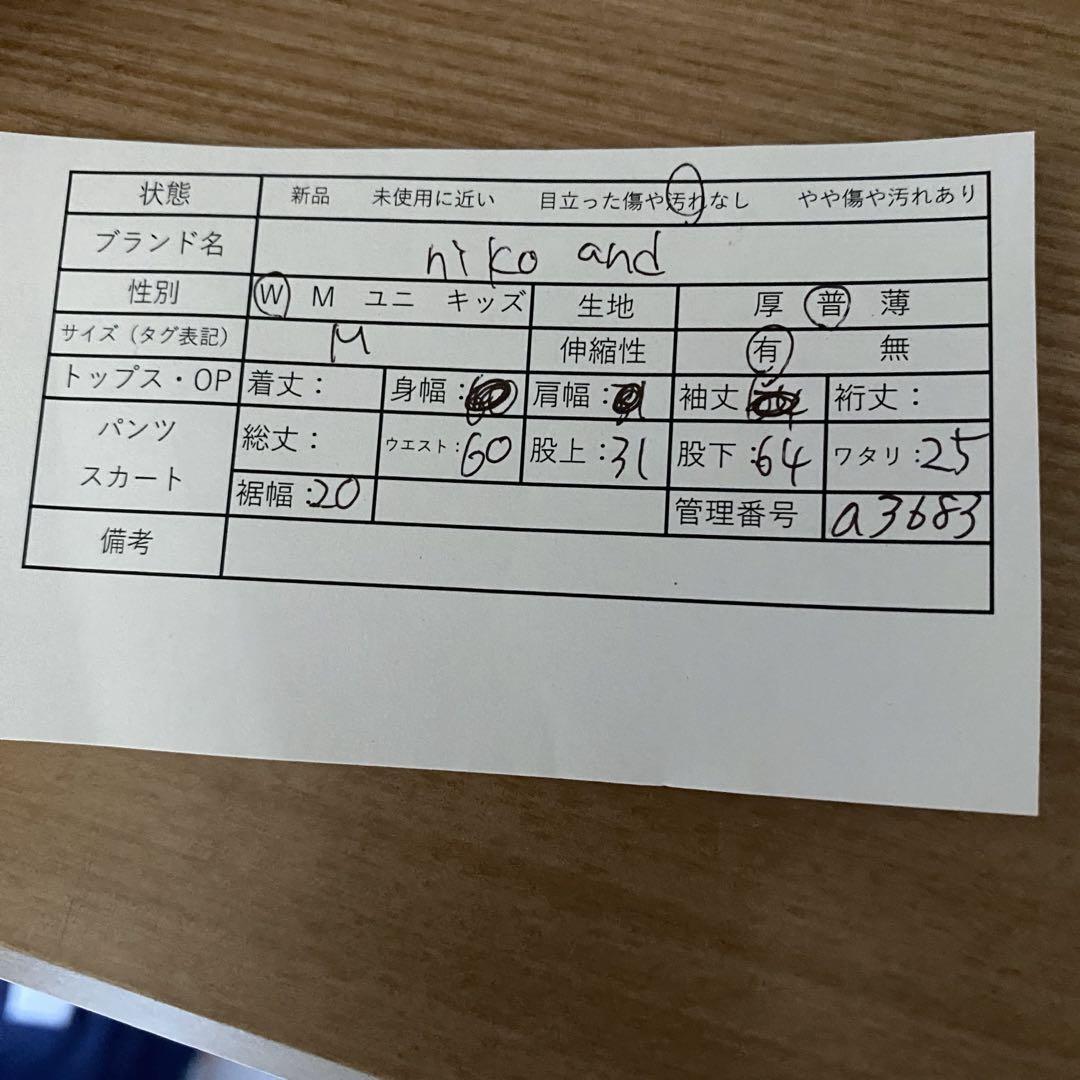 状態 新品 未使用に近い 目立った傷や汚れなし やや傷や汚れあり
ブランド名 niko and
性別 W M ユニ キッズ 生地 厚 普 薄
サイズ（タグ表記） M 伸縮性 有 無
トップス・OP 着丈： 身幅： 肩幅： 袖丈 裄丈：
パンツ スカート 総丈： ウエスト：60 股上：31 股下：64 ワタリ：25
裾幅：20 管理番号 a3683
備考